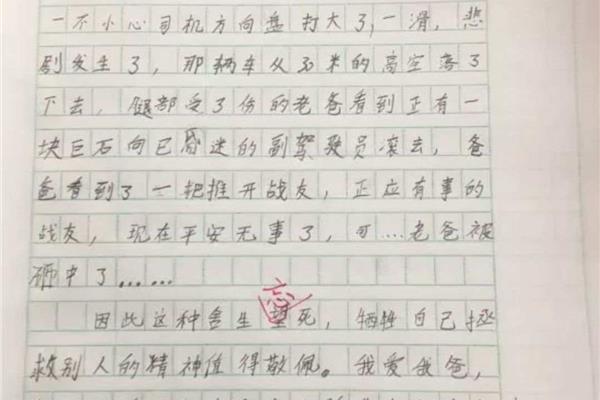 一不小心司机方向盘打大了,一滑,悲
剧发生了,那辆车从30米的高空落了
下去,腿部受了伤的老爸看到正有一
块巨石向已昏迷的副驾驶员滚去,爸
爸看到了一把推开战友,正应有事的
战友,现在平安无事了,可...老爸被
砸中了......
忘
因此这种舍生望死,牺牲自己拯
救别人的精神值得敬佩。我爱我爸,